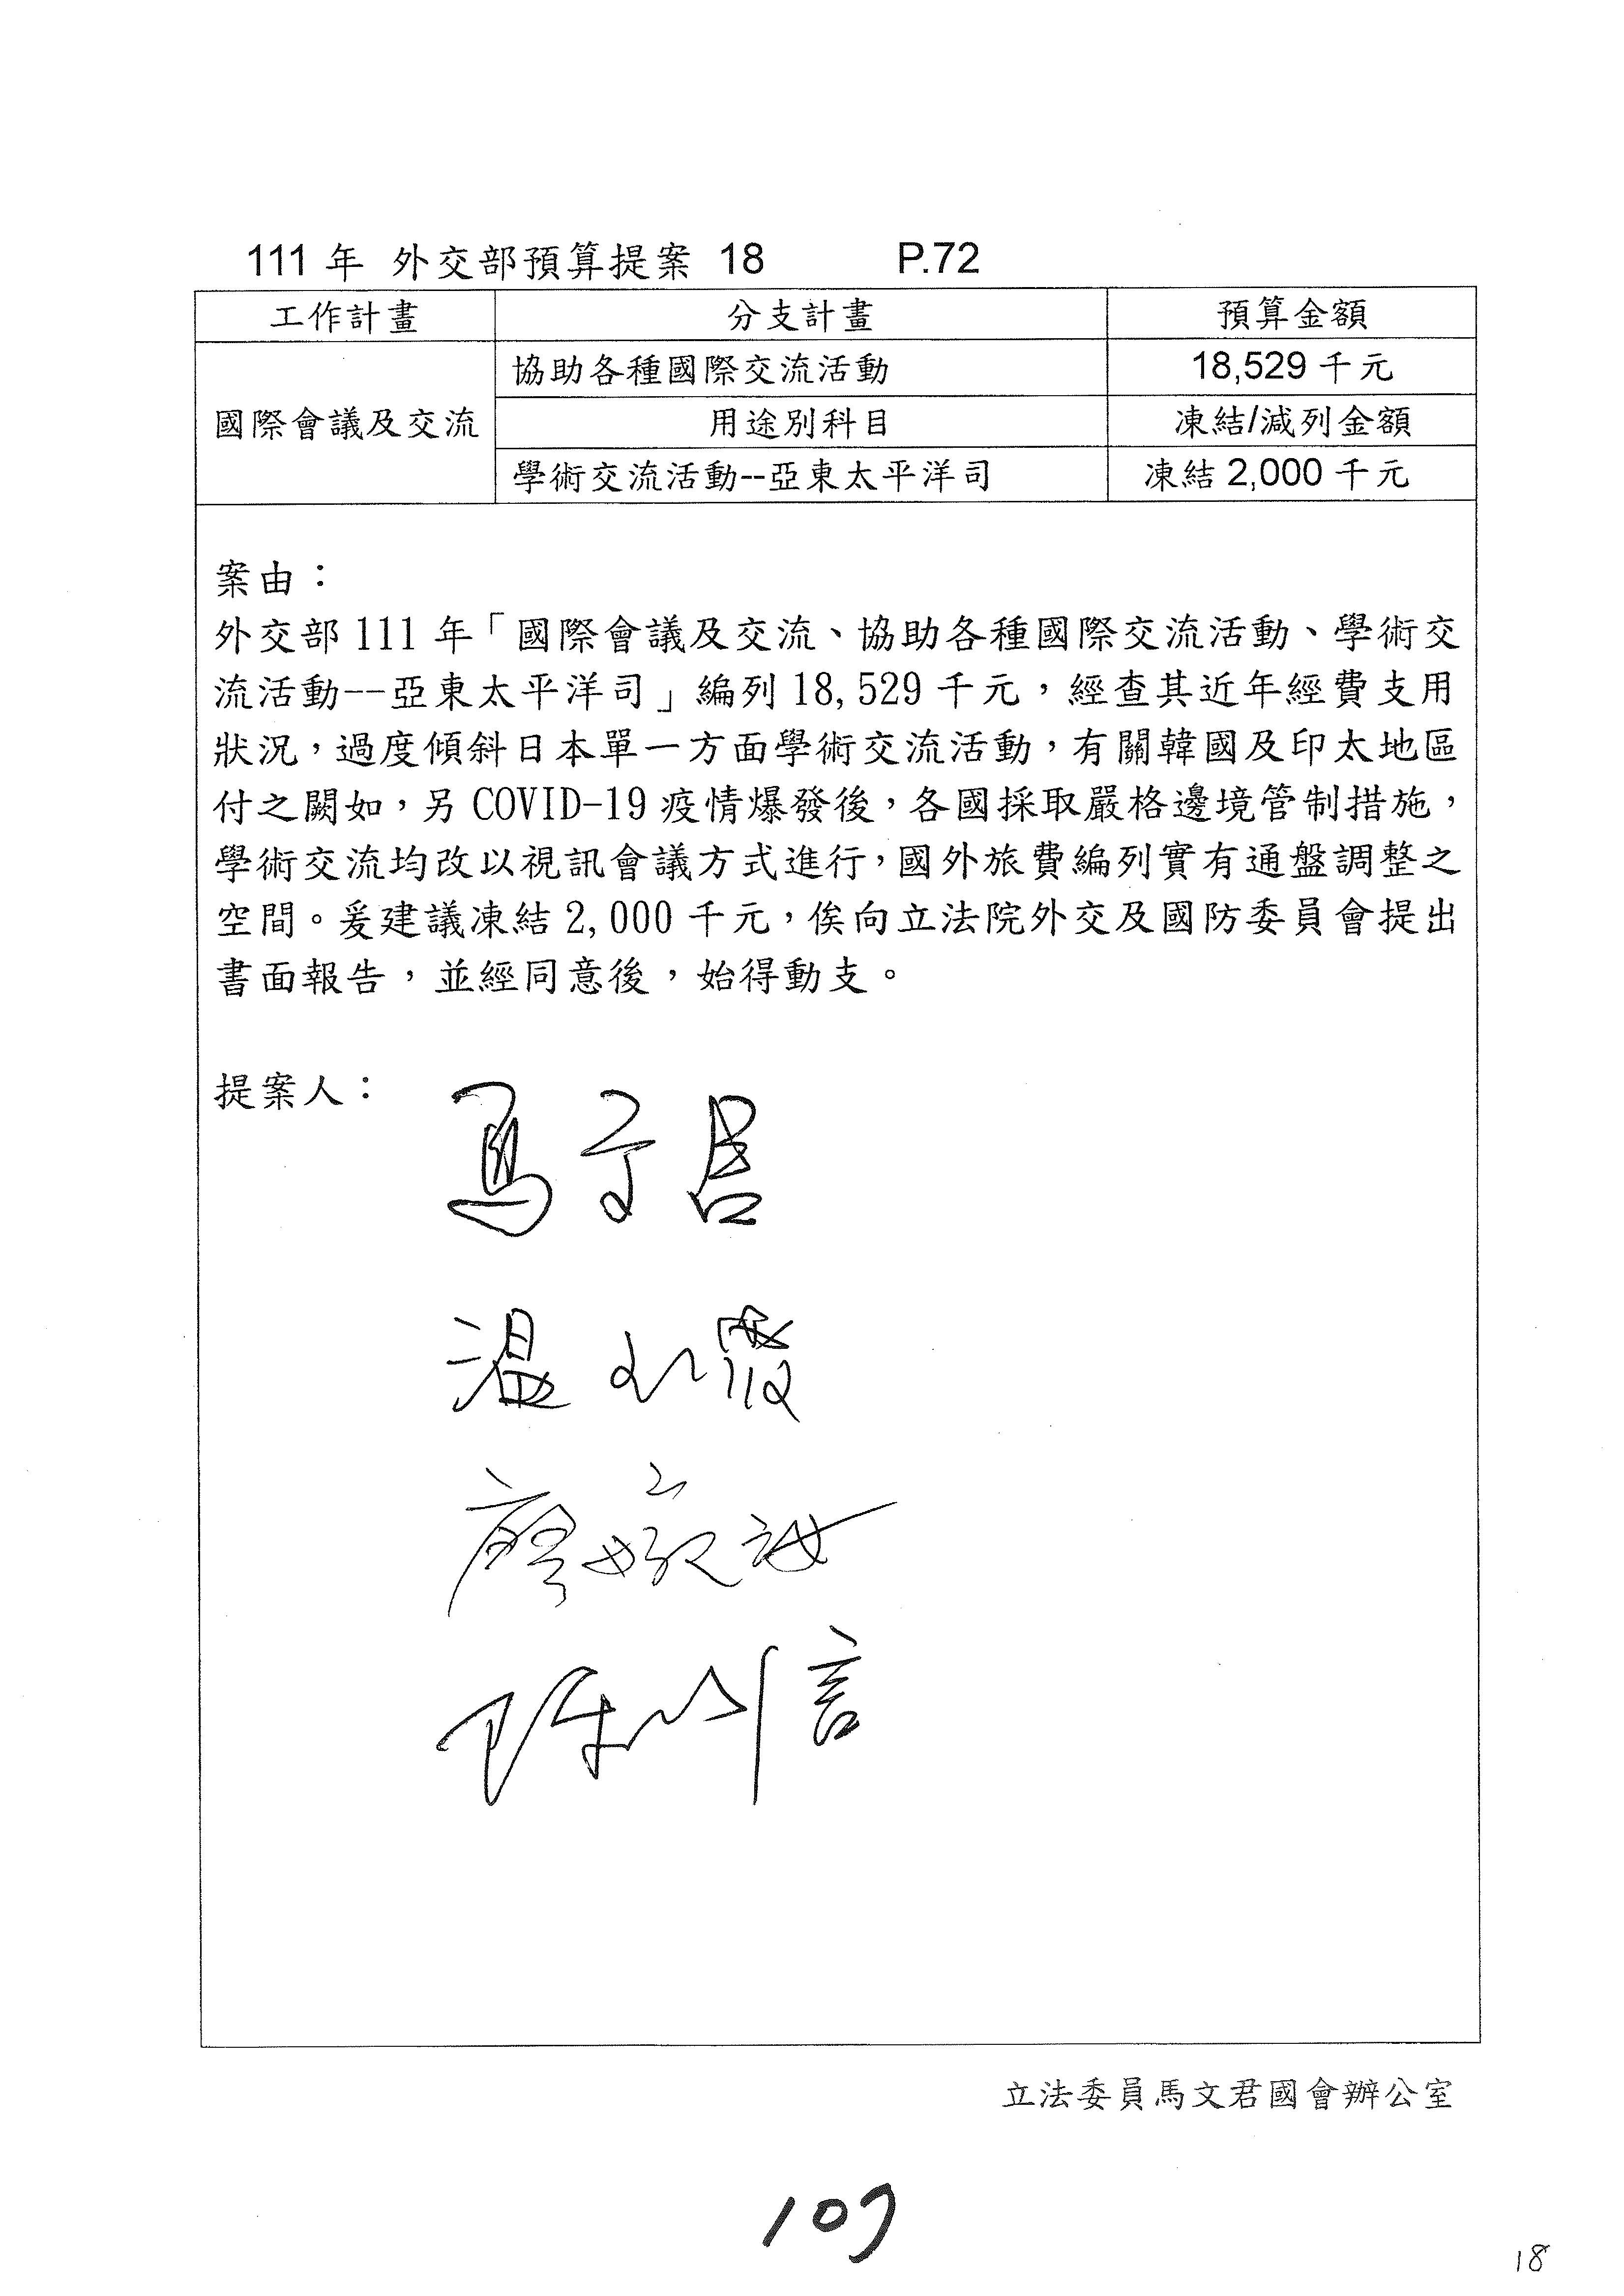 111 年 外交部預算提案 18 P.72
工作計畫 分支計畫 預算金額
國際會議及交流 協助各種國際交流活動 18,529 千元
用途別科目 凍結/減列金額
學術交流活動--亞東太平洋司 凍結 2,000 千元
案由：
外交部 111 年「國際會議及交流、協助各種國際交流活動、學術交
流活動--亞東太平洋司」編列 18,529 千元，經查其近年經費支用
狀況，過度傾斜日本單一方面學術交流活動，有關韓國及印太地區
付之闕如，另 COVID-19 疫情爆發後，各國採取嚴格邊境管制措施，
學術交流均改以視訊會議方式進行，國外旅費編列實有通盤調整之
空間。爰建議凍結 2,000 千元，俟向立法院外交及國防委員會提出
書面報告，並經同意後，始得動支。
提案人：
馬文君
溫玉霞
陳以信
立法委員馬文君國會辦公室
109
18